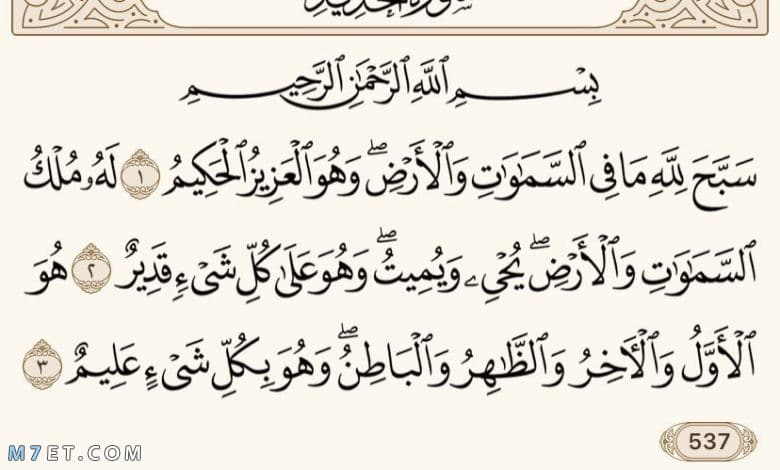 سورة الحديد
بِسْمِ ٱللَّهِ ٱلرَّحْمَٰنِ ٱلرَّحِيمِ
سَبَّحَ لِلَّهِ مَا فِى ٱلسَّمَٰوَٰتِ وَٱلْأَرْضِ ۖ وَهُوَ ٱلْعَزِيزُ ٱلْحَكِيمُ ١ لَهُۥ مُلْكُ
ٱلسَّمَٰوَٰتِ وَٱلْأَرْضِ ۖ يُحْىِۦ وَيُمِيتُ ۖ وَهُوَ عَلَىٰ كُلِّ شَىْءٍ قَدِيرٌ ٢ هُوَ
ٱلْأَوَّلُ وَٱلْءَاخِرُ وَٱلظَّٰهِرُ وَٱلْبَاطِنُ ۖ وَهُوَ بِكُلِّ شَىْءٍ عَلِيمٌ ٣
537
M7ET.COM